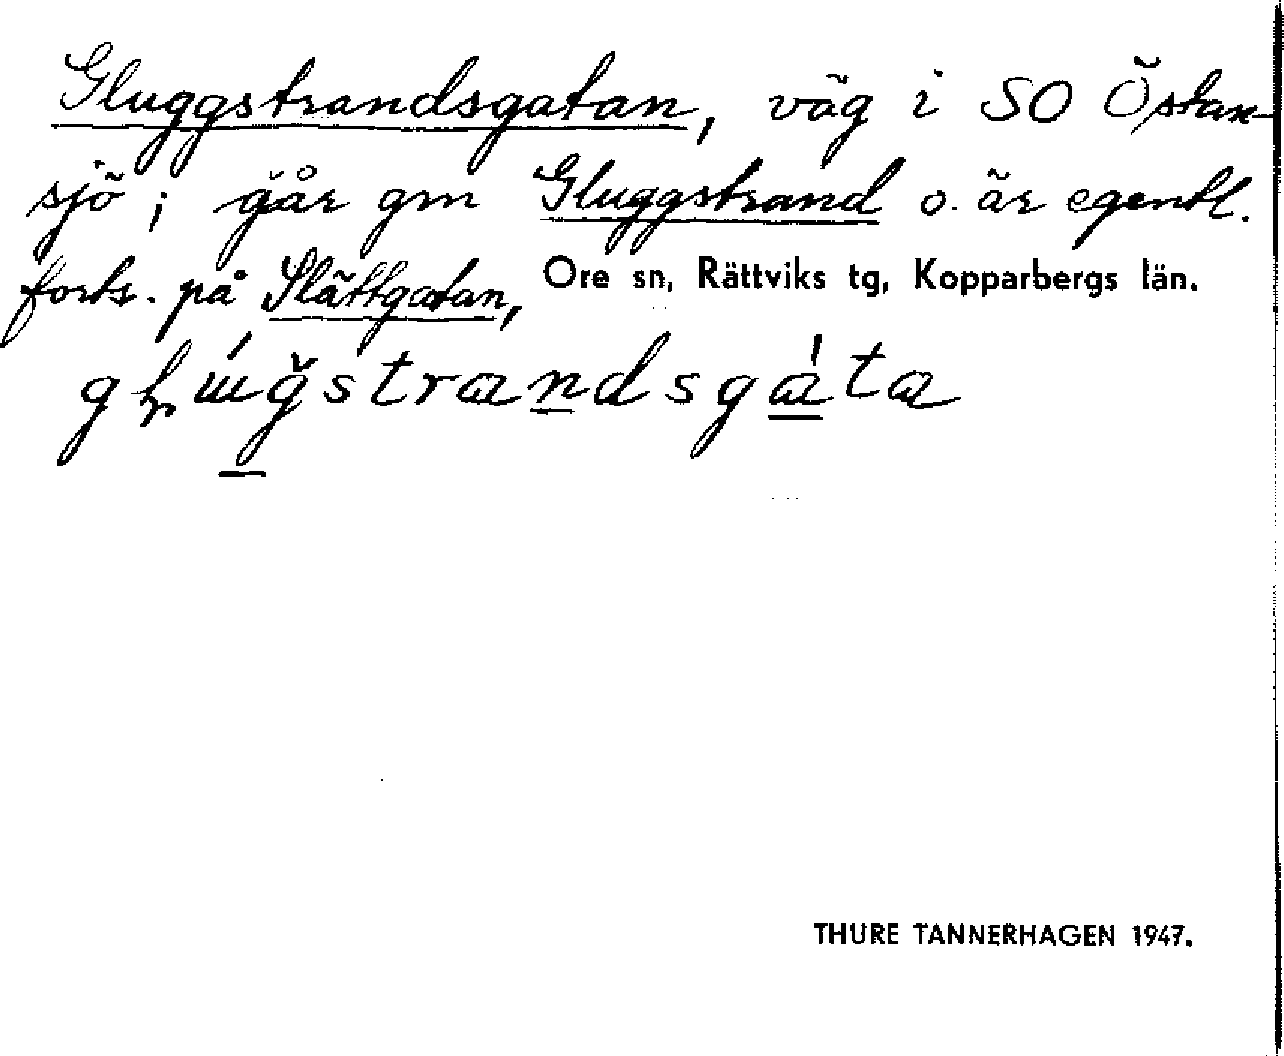 Gluggstrandsgatan, väg i SO Östan-
sjö; går gm Gluggstrand o. är egentl.
forts. på Slättgatan, Ore sn, Rättviks tg, Kopparbergs län.
THURE TANNERHAGEN 1947.